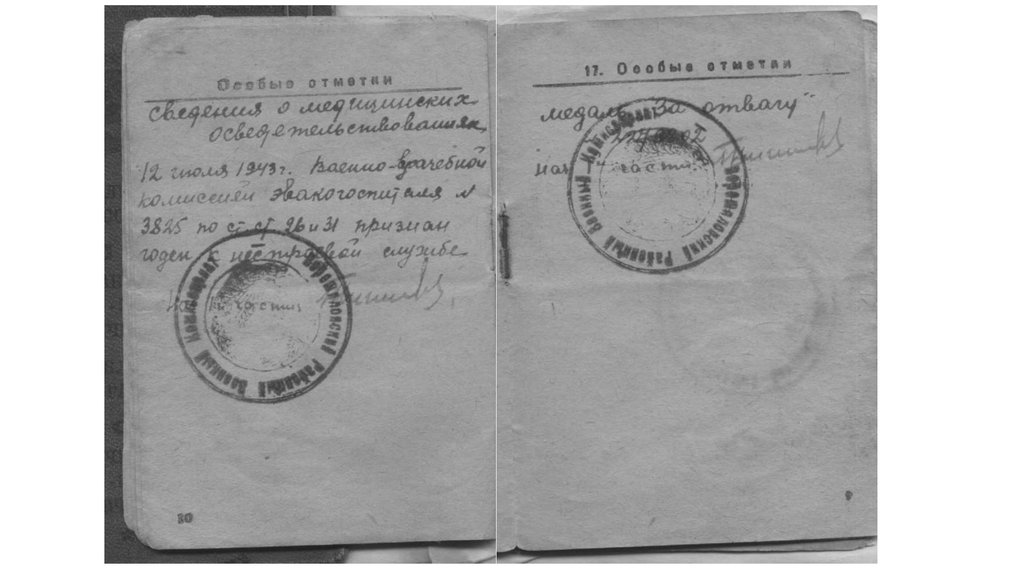 Особые отметки
сведения о медицинских
освидетельствованиях
12 июля 1943г. Военно-врачебной
комиссией Эвакогоспиталя №
3825 по ст. ст. 26 и 31 признан
годен к нестроевой службе
нач 1 части
Ворошиловский Районный Военный Комиссариат
10
17. Особые отметки
медаль "За отвагу"
нач 1 части
Ворошиловский Районный Военный Комиссариат
9